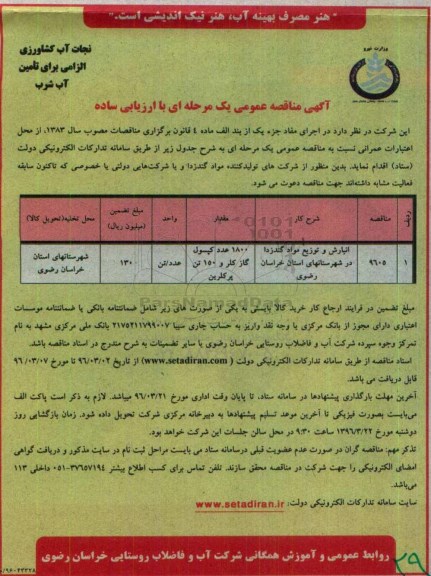 "هنر مصرف بهینه آب، هنر نیک اندیشی است."
وزارت نیرو
نجات آب کشاورزی
الزامی برای تأمین
آب شرب
آگهی مناقصه عمومی یک مرحله ای با ارزیابی ساده
این شرکت در نظر دارد در اجرای مفاد جزء یک از بند الف ماده ۴ قانون برگزاری مناقصات مصوب سال ۱۳۸۳، از محل
اعتبارات عمرانی نسبت به مناقصه عمومی یک مرحله ای به شرح جدول زیر از طریق سامانه تدارکات الکترونیکی دولت
(ستاد) اقدام نماید. بدین منظور از شرکت های تولیدکننده مواد گندزدا و یا شرکت‌هایی دولتی یا خصوصی که تاکنون سابقه
فعالیت مشابه داشته‌اند جهت مناقصه دعوت می شود.
ردیف مناقصه شرح کار مقدار واحد مبلغ تضمین (میلیون ریال) محل تخلیه(تحویل کالا)
۱ ۹۶۰۵ انبارش و توزیع مواد گندزدا در شهرستانهای استان خراسان رضوی ۱۸۰۰ عدد کپسول گاز کلر و ۱۵۰ تن پرکلرین عدد/تن ۱۳۰۰ شهرستانهای استان خراسان رضوی
مبلغ تضمین در فرایند ارجاع کار خرید کالا بایستی به یکی از صورت های زیر شامل ضمانتنامه بانکی یا ضمانتنامه موسسات
اعتباری دارای مجوز از بانک مرکزی یا وجه نقد واریز به حساب جاری سیبا ۲۱۷۵۲۱۱۷۹۹۰۰۷ بانک ملی مرکزی مشهد به نام
تمرکز وجوه سپرده شرکت آب و فاضلاب روستایی خراسان رضوی یا سایر تضمینات به شرح مندرج در اسناد مناقصه باشد.
اسناد مناقصه از طریق سامانه تدارکات الکترونیکی دولت (www.setadiran.com) از تاریخ ۹۶/۰۳/۰۲ تا مورخ ۹۶/۰۳/۰۷
قابل دریافت می باشد.
آخرین مهلت بارگذاری پیشنهادها در سامانه ستاد، تا پایان وقت اداری مورخ ۹۶/۰۳/۲۱ میباشد. لازم به ذکر است پاکت الف
می‌بایست بصورت فیزیکی تا آخرین موعد تسلیم پیشنهادها به دبیرخانه مرکزی شرکت تحویل داده شود. زمان بازگشایی روز
دوشنبه مورخ ۱۳۹۶/۳/۲۲ ساعت ۹:۳۰ در محل سالن جلسات این شرکت خواهد بود.
تذکر مهم: مناقصه گران در صورت عدم عضویت قبلی درسامانه ستاد می بایست مراحل ثبت نام در سایت مذکور و دریافت گواهی
امضای الکترونیکی را جهت شرکت در مناقصه محقق سازند. تلفن تماس برای کسب اطلاع بیشتر ۳۷۶۵۷۱۹۴-۰۵۱ داخلی ۱۱۳
می‌باشد.
سایت سامانه تدارکات الکترونیکی دولت: www.setadiran.ir
روابط عمومی و آموزش همگانی شرکت آب و فاضلاب روستایی خراسان رضوی
۲۹